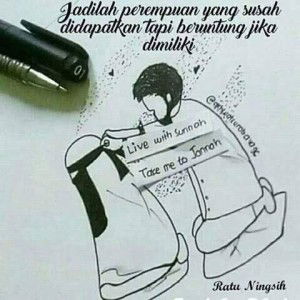 Jadilah perempuan yang susah
didapatkan tapi beruntung jika
dimiliki
0
Live with Sunnah
Take me to Jannah
Ratu Ningsih